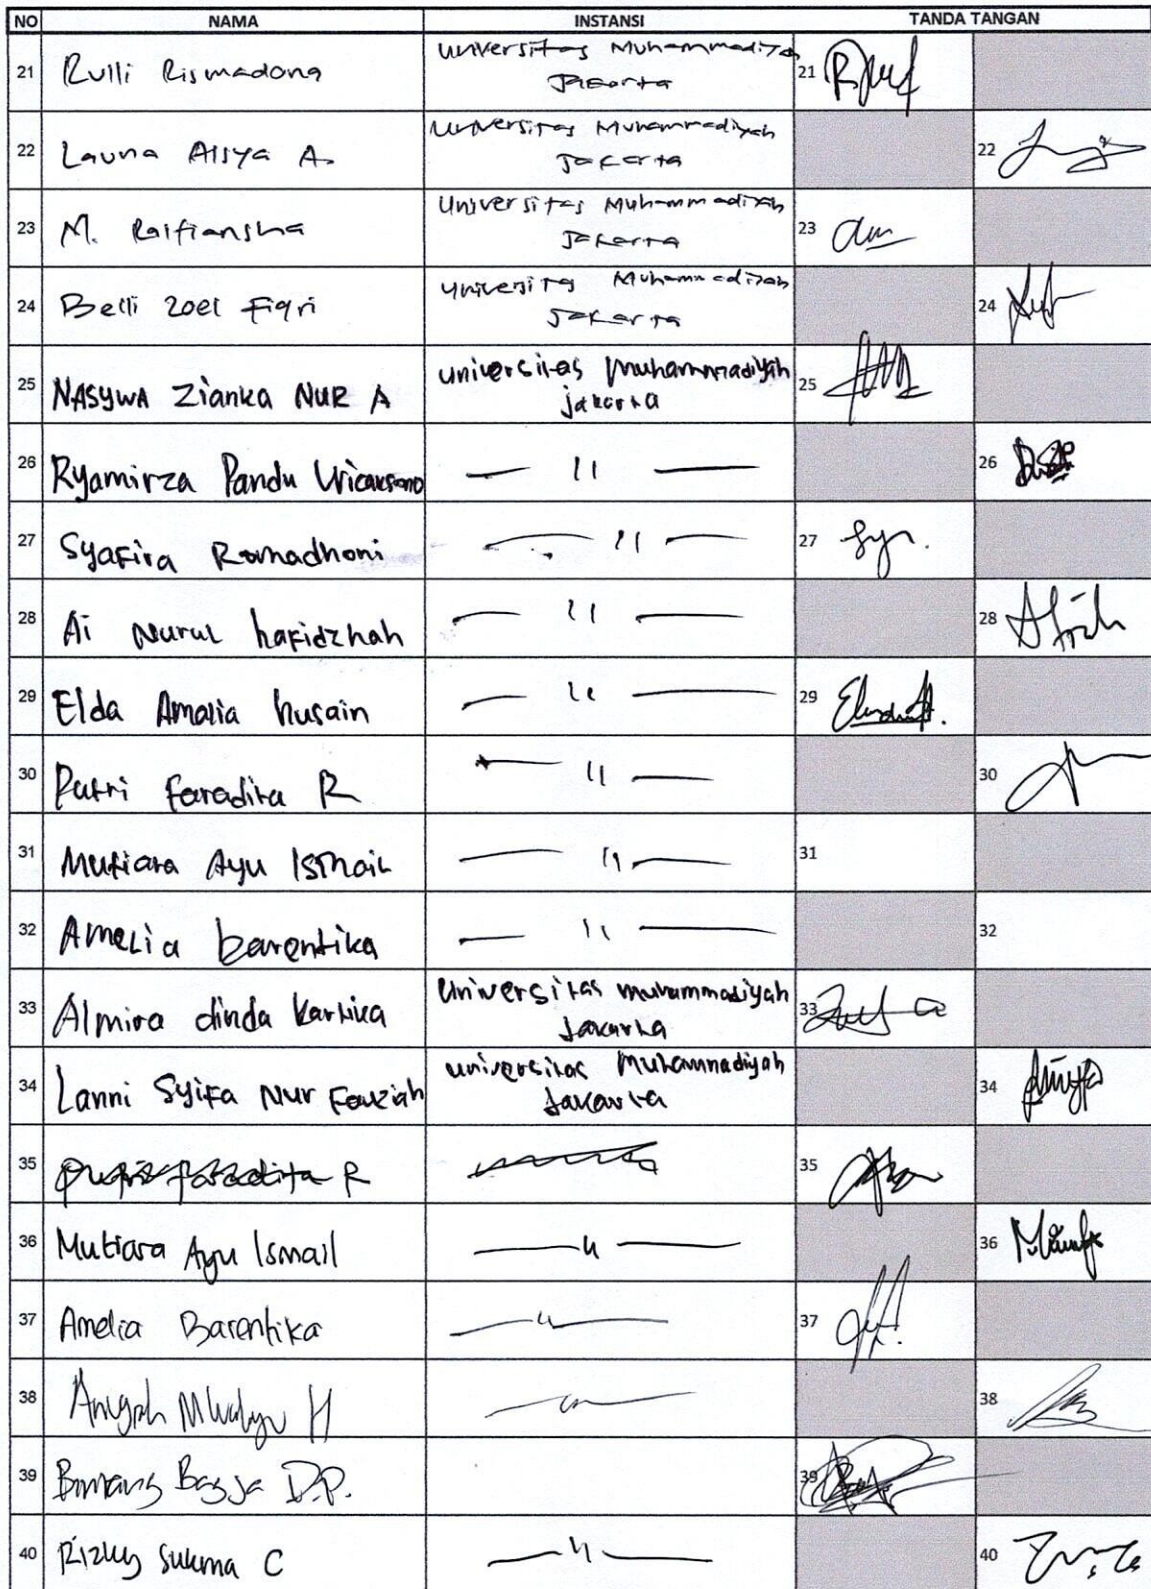 NO NAMA INSTANSI TANDA TANGAN
21 Rulli Rismadona Universitas Muhammadiyah Jakarta 21
22 Launa Aisya A. Universitas Muhammadiyah Jakarta 22
23 M. Raifiansha Universitas Muhammadiyah Jakarta 23
24 Belli Zoel Fiqri Universitas Muhammadiyah Jakarta 24
25 NASYWA Zianka NUR A universitas muhammadiyah jakarta 25
26 Ryamirza Pandu Wicaksono — 11 — 26
27 Syafira Romadhoni — 11 — 27 Syr.
28 Ai Nurul hafidzhah — 11 — 28
29 Elda Amalia husain — 11 — 29
30 Putri faradita R — 11 — 30
31 Mutiara Ayu Ismail — 11 — 31
32 Amelia barentika — 11 — 32
33 Almira dinda kartika Universitas muhammadiyah Jakarta 33
34 Lanni Syifa Nur Fauziah universitas Muhammadiyah Jakarta 34
35 Putri faradita R 35
36 Mutiara Ayu Ismail — u — 36
37 Amelia Barentika — u — 37
38 H 38
39 Bagja D.P. 39
40 Rizky Sukma C — 4 — 40